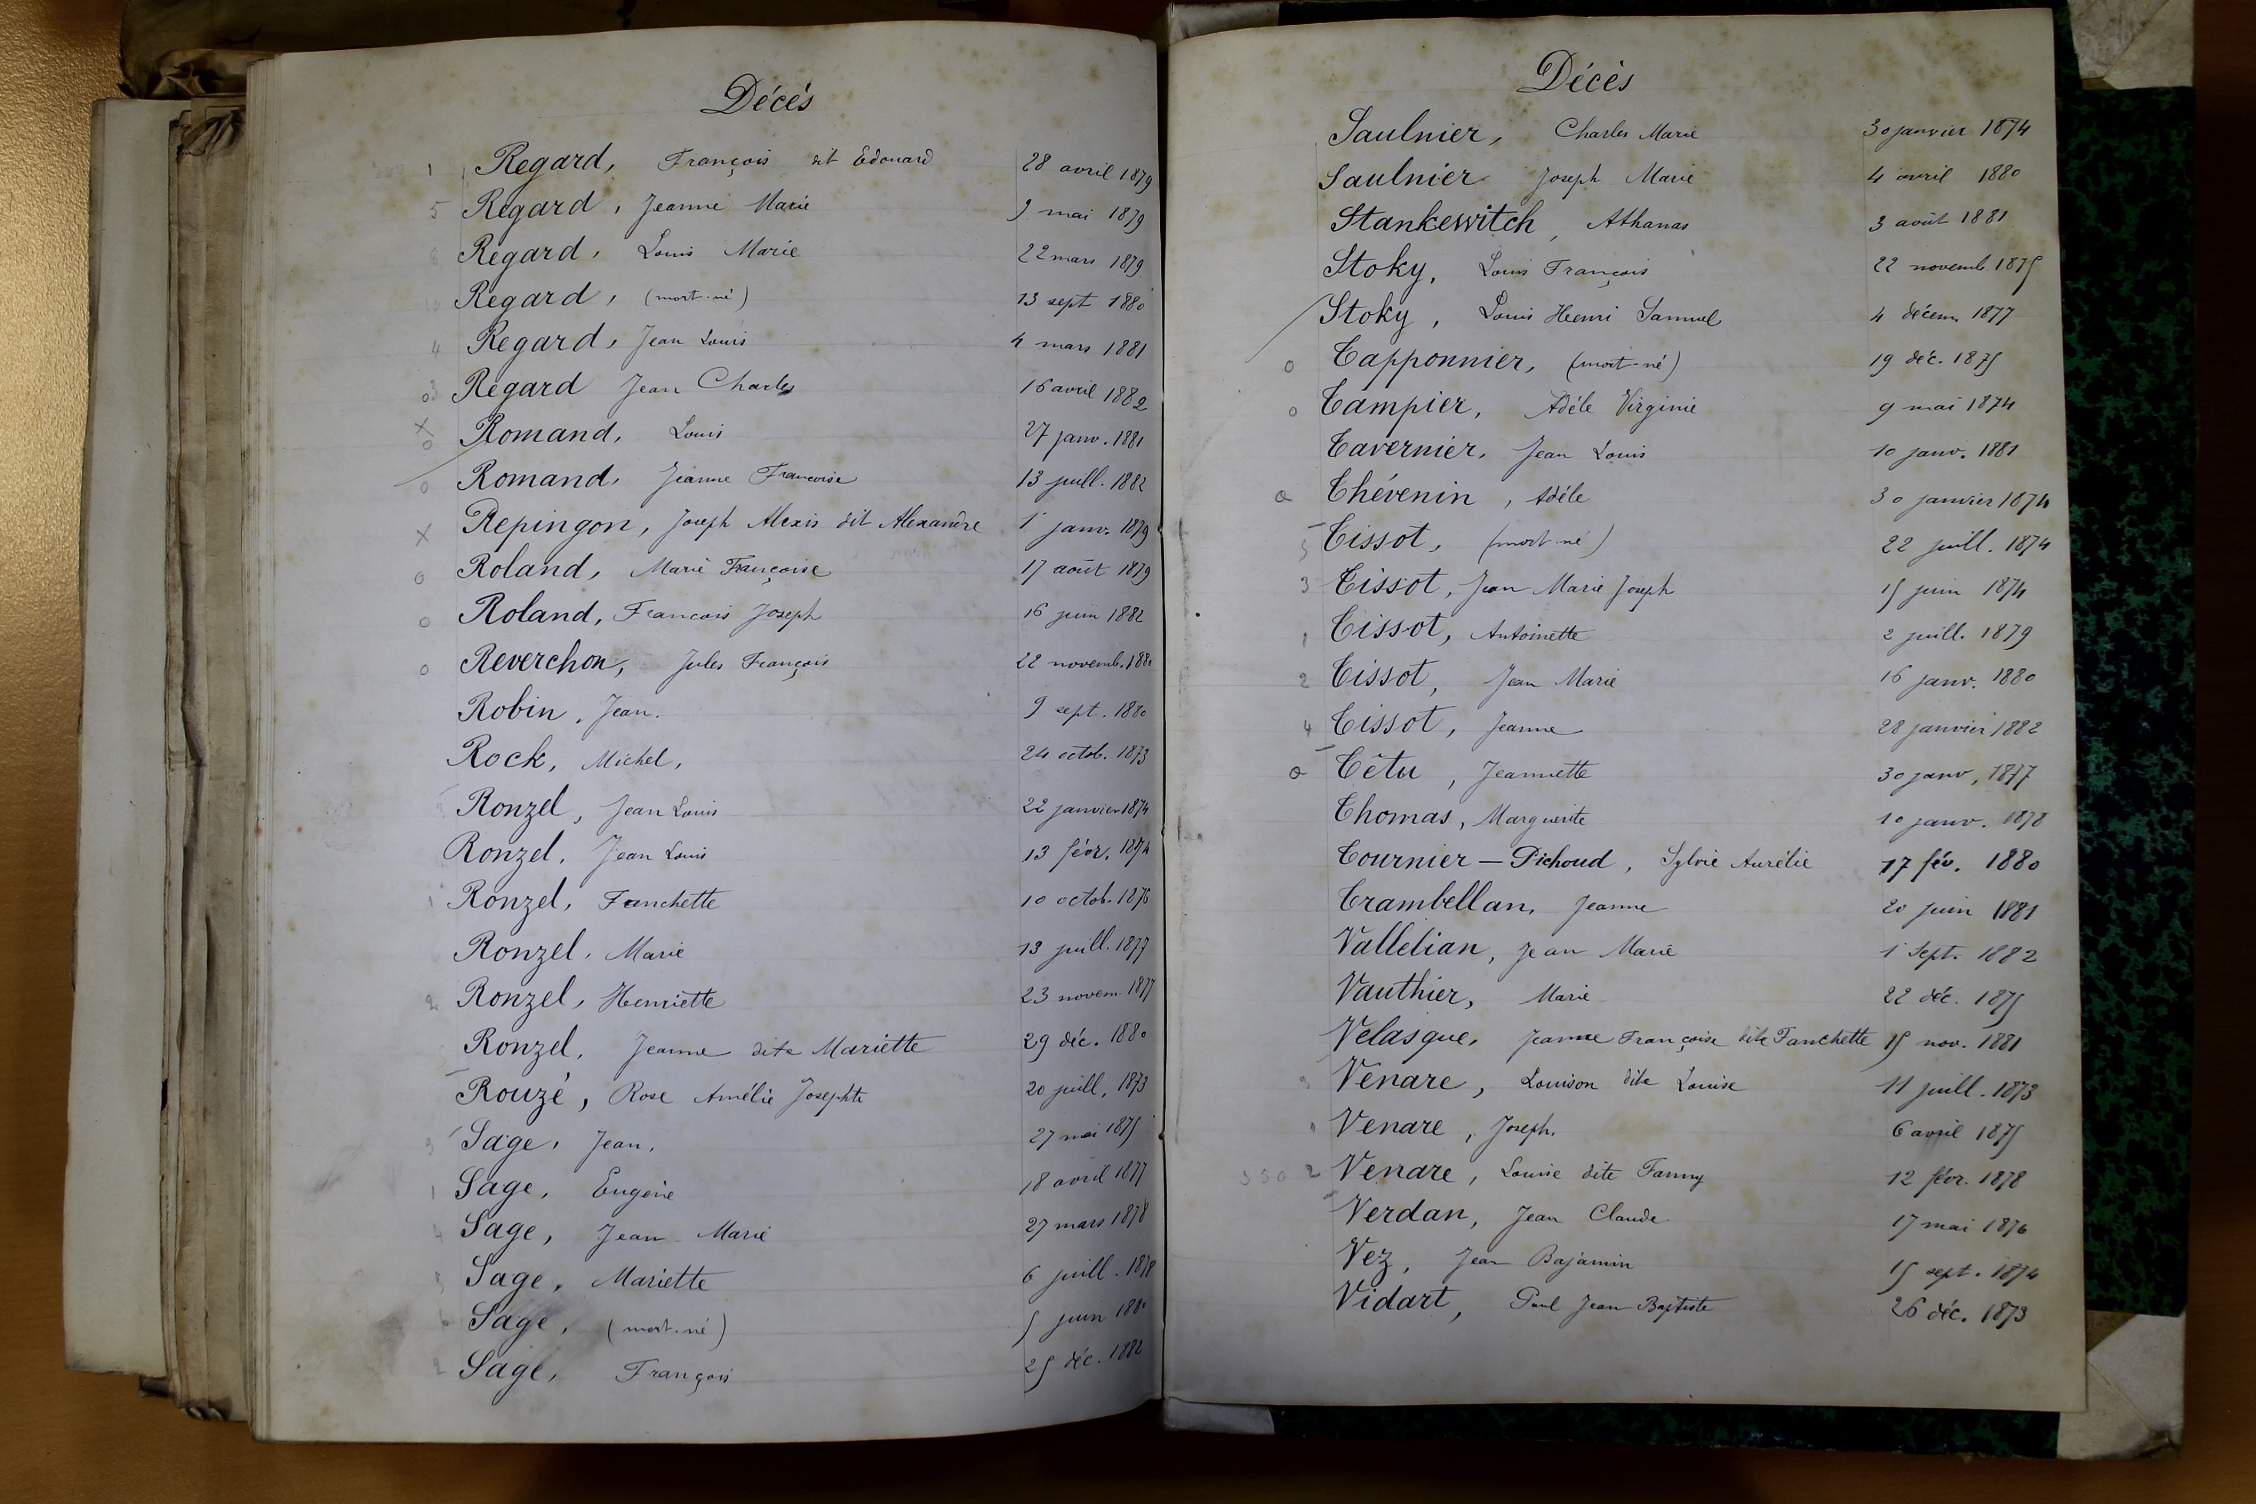 Décés
1 Regard, François dit Edouard 28 avril 1879
5 Regard, Jeanne Marie 9 mai 1879
6 Regard, Louis Marie 22 mars 1879
Regard, (mort-né) 13 sept 1880
4 Regard, Jean Louis 4 mars 1881
03 Regard Jean Charles 16 avril 1882
X o Romand, Louis 27 janv. 1881
o Romand, Jeanne Francoise 13 juill. 1882
X Repingon, Joseph Alexis dit Alexandre 1 janv. 1879
o Roland, Marie Françoise 17 août 1879
o Roland, Francois Joseph 16 juin 1882
o Reverchon, Jules François 22 novemb. 1880
Robin, Jean. 9 sept. 1880
Rock, Michel, 24 octob. 1873
Ronzel, Jean Louis 22 janvier 1874
Ronzel, Jean Louis 13 févr. 1874
1 Ronzel, Fanchette 10 octob. 1876
Ronzel, Marie 13 juill. 1877
2 Ronzel, Henriette 23 novem 1877
Ronzel, Jeanne dite Mariette 29 déc. 1880
Rouzé, Rose Amélie Josephte 20 juill, 1873
3 Sage, Jean. 27 mai 1875
1 Sage, Eugène 18 avril 1877
4 Sage, Jean Marie 27 mars 1878
Sage, Mariette 6 juill. 1878
Sage, (mort-né) 5 juin 1880
2 Sage, François 25 déc. 1882
Décès
Saulnier, Charles Marie 30 janvier 1874
Saulnier Joseph Marie 4 avril 1880
Stankewitch, Athanas 3 août 1881
Stoky, Louis François 22 novemb. 1875
Stoky, Louis Henri Samuel 4 décem. 1877
o Tapponnier, (mort-né) 19 déc. 1875
o Tampier, Adéle Virginie 9 mai 1874
Tavernier, Jean Louis 10 janv. 1881
o Thévenin, Adéle 30 janvier 1874
5 Tissot, (mort-né) 22 juill. 1874
3 Tissot, Jean Marie Joseph 15 juin 1874
1 Tissot, Antoinette 2 juill. 1879
2 Tissot, Jean Marie 16 janv. 1880
4 Tissot, Jeanne 28 janvier 1882
o Têtu, Jeannette 30 janv, 1877
Thomas, Marguerite 10 janv. 1878
Tournier – Pichoud, Sylvie Aurélie 17 fév. 1880
Trambellan, Jeanne 20 juin 1881
Vallelian, Jean Marie 1 Sept. 1882
Vauthier, Marie 22 déc. 1875
Velasque, Jeanne Françoise dite Fanchette 15 nov. 1881
3 Venare, Louison dite Louise 11 juill. 1873
1 Venare, Joseph. 6 avril 1875
350 2 Venare, Louise dite Fanny 12 févr. 1878
Verdan, Jean Claude 17 mai 1876
Vez, Jean Bajamin 15 sept. 1874
Vidart, Paul Jean Baptiste 26 déc. 1873